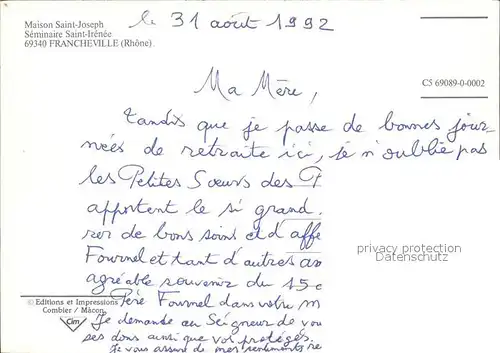 Maison Saint-Joseph
Séminaire Saint-Irénée
69340 FRANCHEVILLE (Rhône)
le 31 août 1992
CS 69089-0-0002
Ma Mère,
Tandis que je passe de bonnes jour
nées de retraite ici, je n'oublie pas
les Petites Sœurs des P
apportent le si grand
rer de bons soins et d'affe
Fournel et tant d'autres
agréable souvenir du 15
Père Fournel dans votre m
Je demande au Seigneur de vou
ses dons ainsi que vos protégés.
Je vous assure de mes sentiments re
privacy protection
Datenschutz
© Editions et Impressions
Combier / Mâcon
Cim